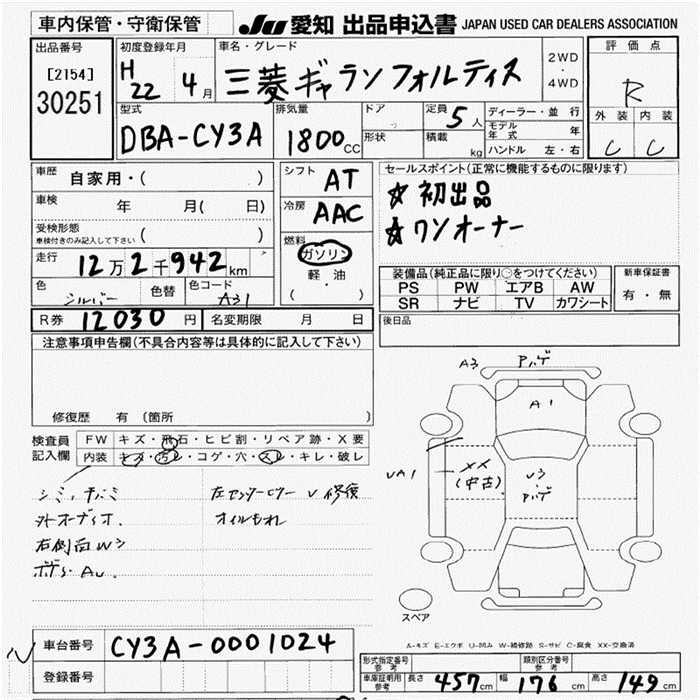 車内保管・守衛保管
JU 愛知 出品申込書 JAPAN USED CAR DEALERS ASSOCIATION
出品番号
[2154]
30251
初度登録年月
H22 4月
車名・グレード
三菱ギャランフォルティス
2WD
・
4WD
評価点
R
外装 内装
C C
型式
DBA-CY3A
排気量
1800cc
ドア
形状
定員 5人
積載 kg
ディーラー・並行
モデル年式 年
ハンドル 左・右
車歴 自家用・( )
車検 年 月( 日)
受検形態 ( )
車検付きのみ記入して下さい
走行 12万2千942km
色 シルバー 色替 色コード A31
シフト AT
冷房 AAC
燃料
ガソリン
軽油
( ・ )
セールスポイント(正常に機能するものに限ります)
☆初出品
☆ワンオーナー
装備品(純正品に限り○をつけてください)
PS PW エアB AW
SR ナビ TV カワシート
新車保証書
有・無
R券 12030円 名変期限 月 日
後日品
注意事項申告欄(不具合内容等は具体的に記入して下さい)
修復歴 有 (箇所
検査員記入欄
FW キズ・飛石・ヒビ割・リペア跡・X要
内装 キズ・汚レ・コゲ・穴・スレ・キレ・破レ
外オーディオ.
右側面Wシ
左センターピラーU修復
オイルもれ
A3
A1
UA1
XX
(中古)
スペア
A-キズ E-エクボ U-凹み W-補修跡 S-サビ C-腐食 XX-交換済
車台番号 CY3A-0001024
登録番号
形式指定番号 参考
類別区分番号 参考
車庫証明用 参考 長さ 457cm 幅 176cm 高さ 149cm